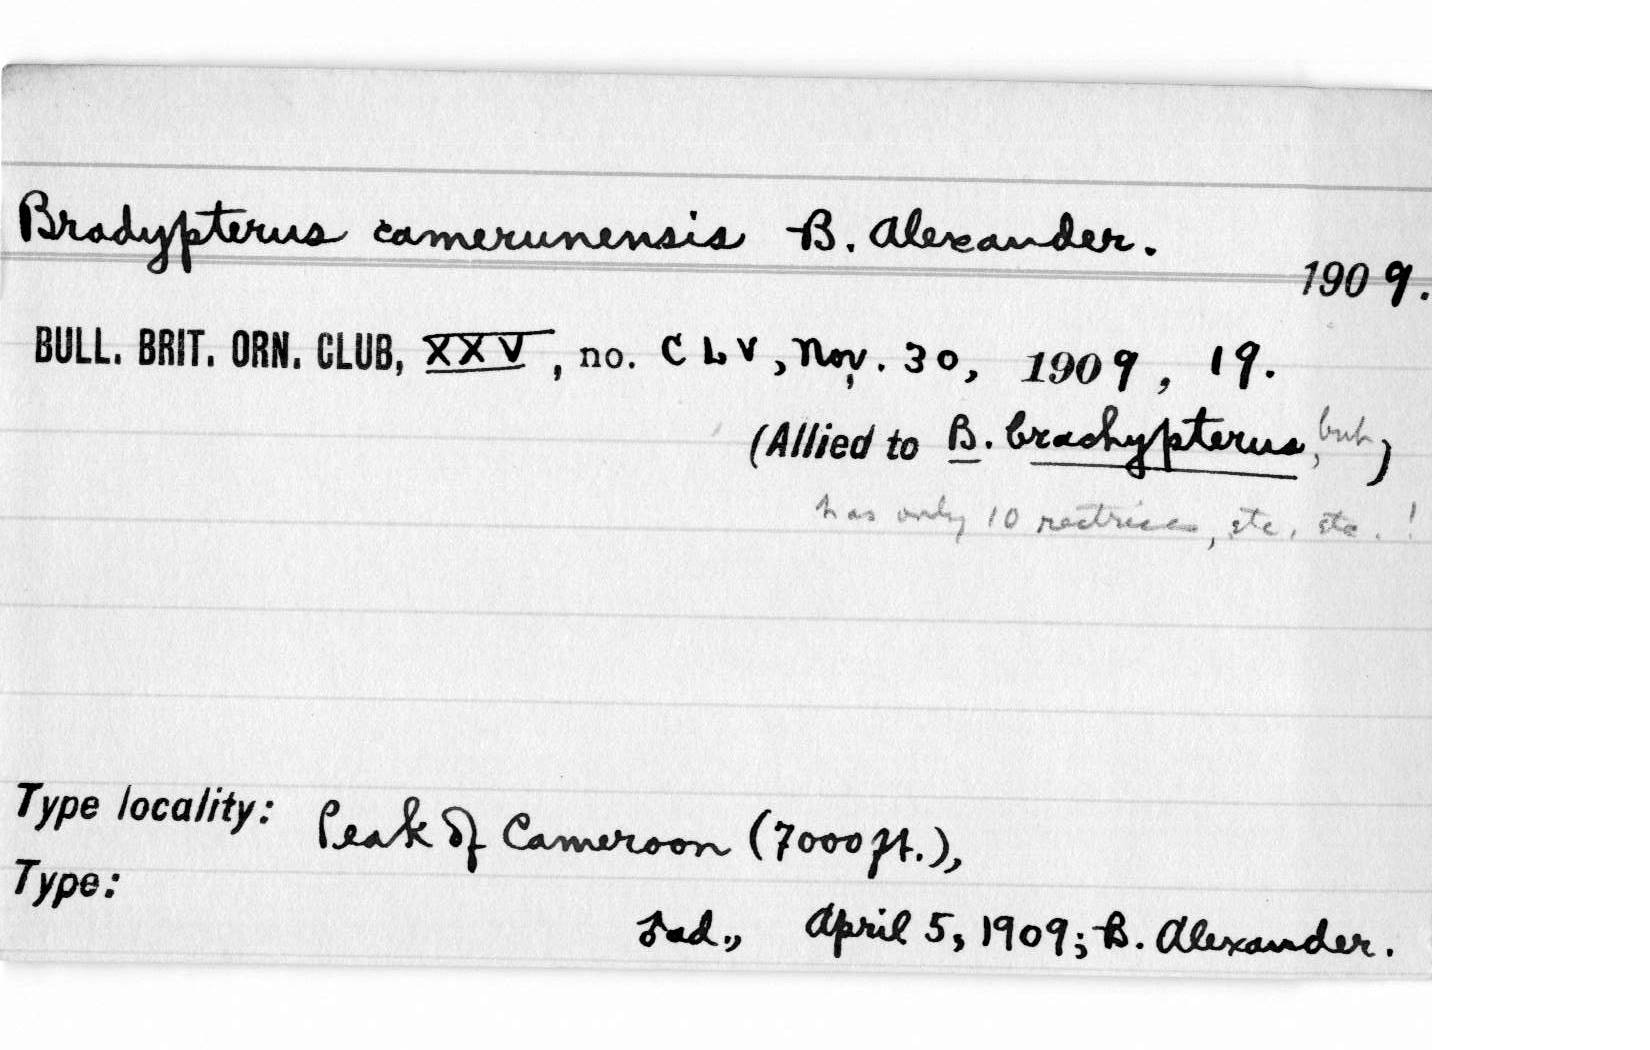 Bradypterus camerunensis B. Alexander.
1909.
BULL. BRIT. ORN. CLUB, XXV, no. CLV, Nov. 30, 1909, 19.
(Allied to B. brachypterus, but)
has only 10 rectrices, etc, etc.!
Type locality: Peak of Cameroon (7000 ft.),
Type:
ad., April 5, 1909; B. Alexander.